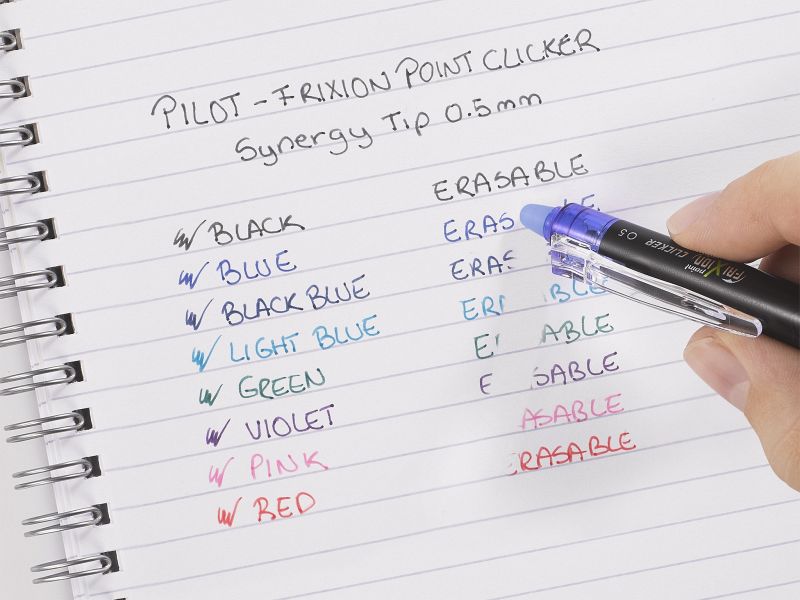 PILOT - FRIXION POINT CLICKER
Synergy Tip 0.5mm
BLACK
BLUE
BLACK BLUE
LIGHT BLUE
GREEN
VIOLET
PINK
RED
ERASABLE
ERAS LE
ERAS
ER BLE
E ABLE
E SABLE
ASABLE
ERASABLE
point FRIXION CLICKER 0.5